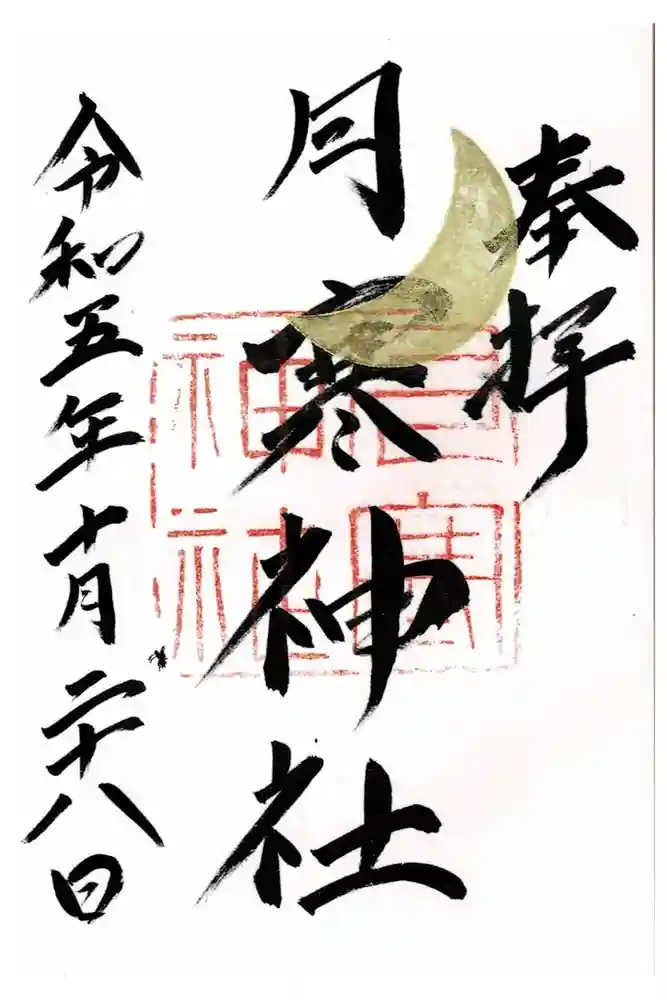 奉拝
月寒神社
月寒神社
令和五年十月二十八日